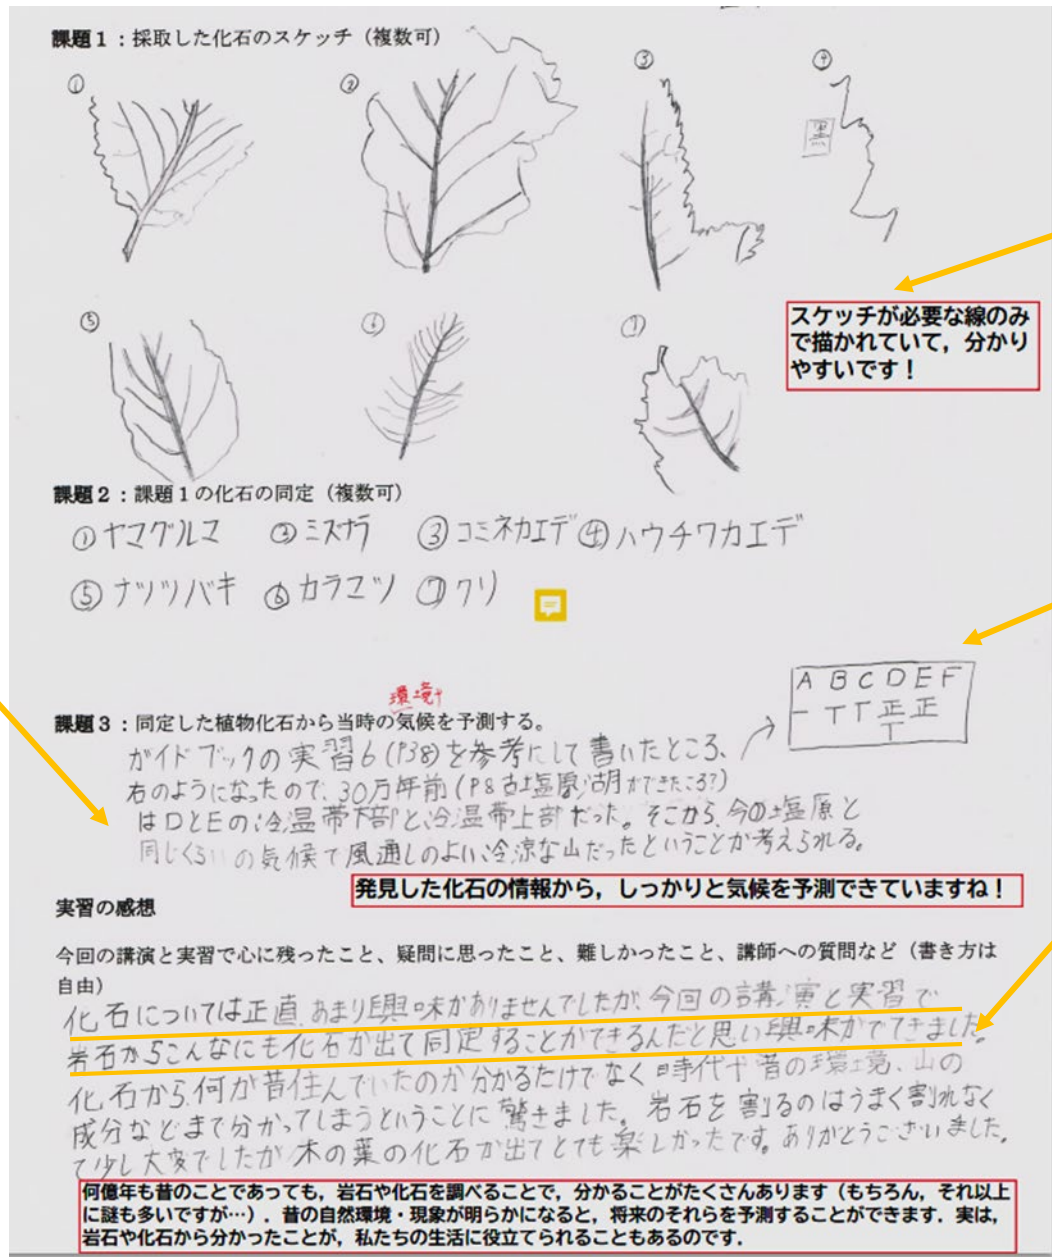 課題1：採取した化石のスケッチ（複数可）
① ② ③ ④
黒
⑤ ⑥ ⑦
スケッチが必要な線のみ
で描かれていて，分かり
やすいです！
課題2：課題1の化石の同定（複数可）
①ヤマグルマ ②ミズナラ ③コミネカエデ ④ハウチワカエデ
⑤ナツツバキ ⑥カラマツ ⑦クリ
環境
課題3：同定した植物化石から当時の気候を予測する。
A B C D E F
一 T T 正 正
T
ガイドブックの実習6(P38)を参考にして書いたところ、
右のようになったので、30万年前(P8古塩原湖ができたころ?)
はDとEの冷温帯下部と冷温帯上部だった。そこから、今の塩原と
同じくらいの気候で風通しのよい冷涼な山だったということが考えられる。
発見した化石の情報から，しっかりと気候を予測できていますね！
実習の感想
今回の講演と実習で心に残ったこと、疑問に思ったこと、難しかったこと、講師への質問など（書き方は
自由）
化石については正直、あまり興味がありませんでしたが、今回の講演と実習で
岩石からこんなにも化石が出て同定することができるんだと思い興味がでてきました。
化石から何が昔住んでいたのか分かるだけでなく時代や昔の環境、山の
成分などまで分かってしまうということに驚きました。岩石を割るのはうまく割れなく
て少し大変でしたが木の葉の化石が出てとても楽しかったです。ありがとうございました。
何億年も昔のことであっても，岩石や化石を調べることで，分かることがたくさんあります（もちろん，それ以上
に謎も多いですが…）．昔の自然環境・現象が明らかになると，将来のそれらを予測することができます．実は，
岩石や化石から分かったことが，私たちの生活に役立てられることもあるのです．